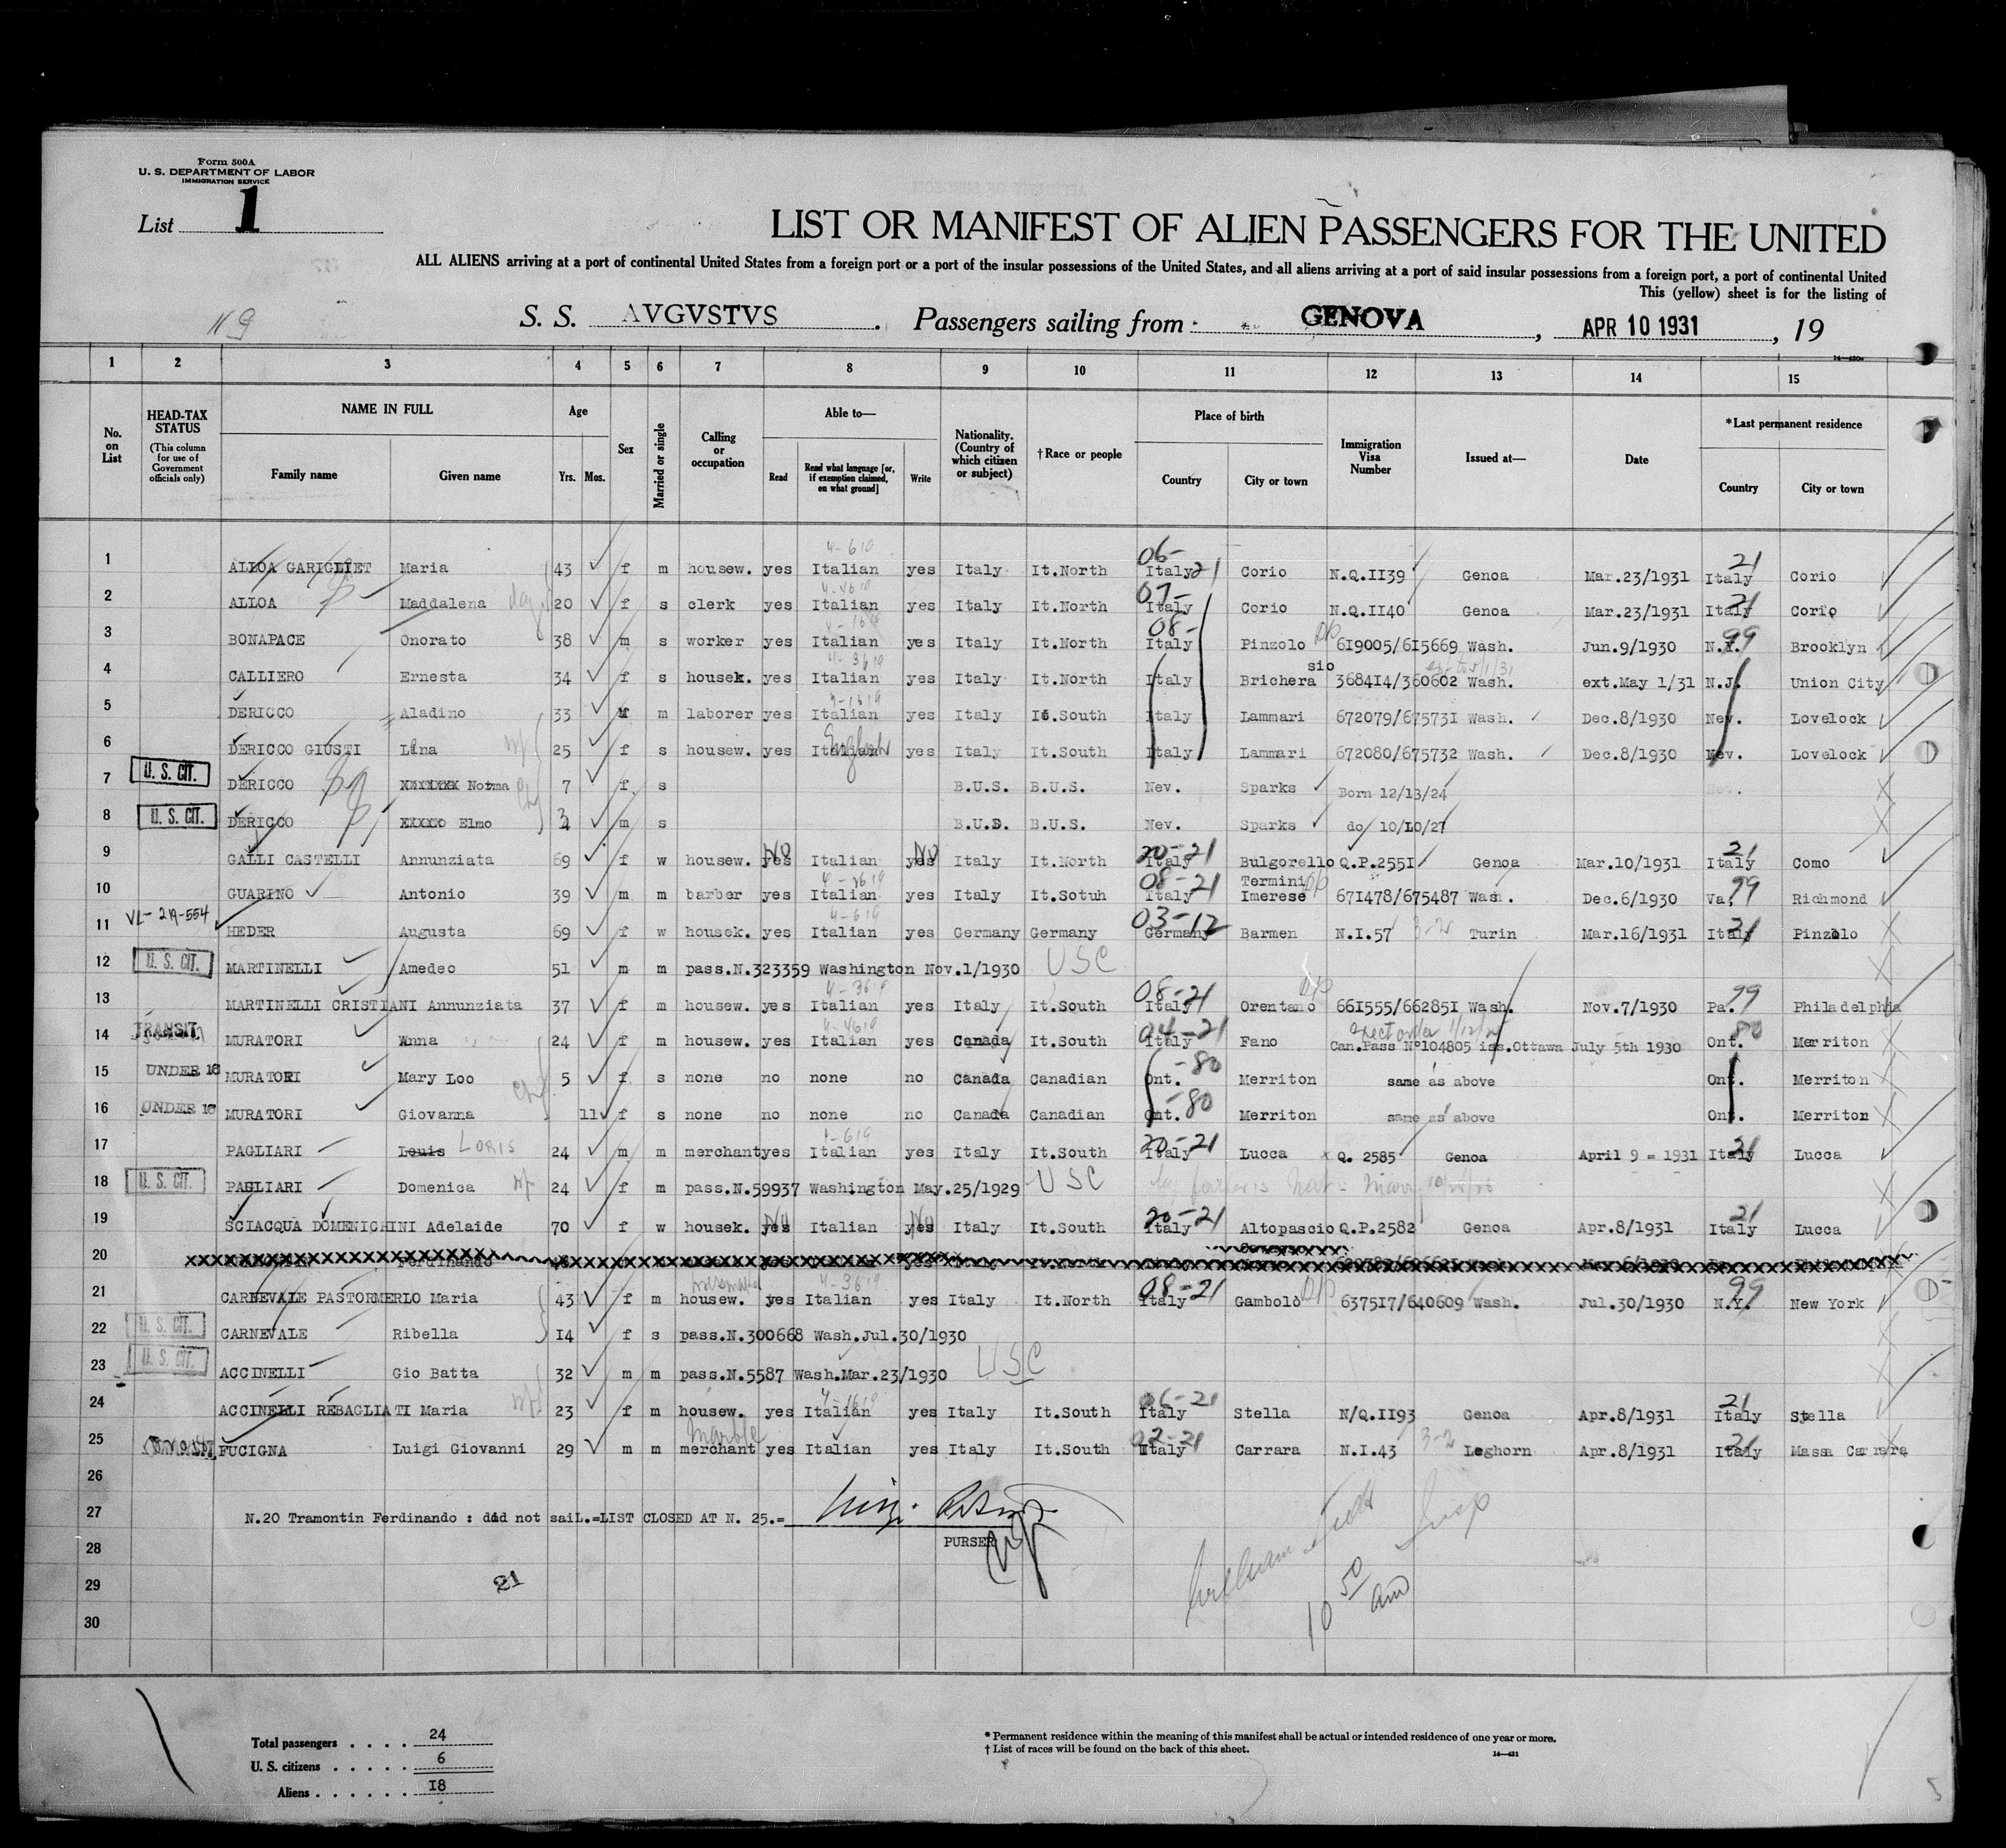 Form 500A
U. S. DEPARTMENT OF LABOR
IMMIGRATION SERVICE
List 1
LIST OR MANIFEST OF ALIEN PASSENGERS FOR THE UNITED
ALL ALIENS arriving at a port of continental United States from a foreign port or a port of the insular possessions of the United States, and all aliens arriving at a port of said insular possessions from a foreign port, a port of continental United
This (yellow) sheet is for the listing of
S. S. AVGVSTVS. Passengers sailing from GENOVA, APR 10 1931, 19
1 2 3 4 5 6 7 8 9 10 11 12 13 14 15
No. on List
HEAD-TAX STATUS (This column for use of Government officials only)
NAME IN FULL Family name Given name
Age Yrs. Mos.
Sex
Married or single
Calling or occupation
Able to— Read Read what language [or, if exemption claimed, on what ground] Write
Nationality. (Country of which citizen or subject)
†Race or people
Place of birth Country City or town
Immigration Visa Number
Issued at—
Date
*Last permanent residence Country City or town
1 ALLOA GARIGLIET Maria 43 f m housew. yes Italian yes Italy It.North 06- Italy 21 Corio N.Q.II39 Genoa Mar.23/1931 Italy 21 Corio
2 ALLOA Maddalena 20 f s clerk yes Italian yes Italy It.North 07- Italy Corio N.Q.II40 Genoa Mar.23/1931 Italy 21 Corio
3 BONAPACE Onorato 38 m s worker yes Italian yes Italy It.North 08- Italy Pinzolo 6I9005/6I5669 Wash. Jun.9/1930 N.Y. 99 Brooklyn
4 CALLIERO Ernesta 34 f s housek. yes Italian yes Italy It.North Italy Bricherasio 3684I4/360602 Wash. ext.May 1/31 N.J. Union City
5 DERICCO Aladino 33 m laborer yes Italian yes Italy It.South Italy Lammari 672079/67573I Wash. Dec.8/1930 Nev. Lovelock
6 DERICCO GIUSTI Lina 25 f s housew. yes Italian English yes Italy It.South Italy Lammari 672080/675732 Wash. Dec.8/1930 Nev. Lovelock
7 U. S. CIT. DERICCO Norma 7 f s B.U.S. B.U.S. Nev. Sparks Born 12/13/24 Nev.
8 U. S. CIT. DERICCO Elmo m s B.U.S. B.U.S. Nev. Sparks do 10/10/27
9 GALLI CASTELLI Annunziata 69 f w housew. yes NO Italian yes NO Italy It.North 20-21 Italy Bulgorello Q.P.255I Genoa Mar.10/1931 Italy 21 Como
10 GUARINO Antonio 39 m m barber yes Italian yes Italy It.Sotuh 08-21 Italy Termini Imerese 67I478/675487 Wash. Dec.6/1930 Va. 99 Richmond
11 VL-219-554 HEDER Augusta 69 f w housek. yes Italian yes Germany Germany 03-12 Germany Barmen N.I.57 3-2 Turin Mar.16/1931 Italy 21 Pinzolo
12 U. S. CIT. MARTINELLI Amedeo 51 m m pass.N.323359 Washington Nov.1/1930 USC
13 MARTINELLI CRISTIANI Annunziata 37 f m housew. yes Italian yes Italy It.South 08-21 Italy Orentano 66I555/66285I Wash. Nov.7/1930 Pa. 99 Philadelphia
14 TRANSIT MURATORI Anna 24 f m housew. yes Italian yes Canada It.South 04-21 Italy Fano Can.Pass Nº104805 iss.Ottawa July 5th 1930 Ont. 80 Merriton
15 UNDER 16 MURATORI Mary Loo 5 f s none no none no Canada Canadian Ont. -80 Merriton same as above Ont. Merriton
16 UNDER 16 MURATORI Giovanna 11 f s none no none no Canada Canadian Ont. -80 Merriton same as above Ont. Merriton
17 PAGLIARI Louis LORIS 24 m m merchant yes Italian yes Italy It.South 20-21 Italy Lucca Q. 2585 Genoa April 9 - 1931 Italy 21 Lucca
18 U. S. CIT. PAGLIARI Domenica 24 f m pass.N.59937 Washington May.25/1929 USC
19 SCIACQUA DOMENICHINI Adelaide 70 f w housek. yes NO Italian yes NO Italy It.South 20-21 Italy Altopascio Q.P.2582 Genoa Apr.8/1931 Italy 21 Lucca
20 Ferdinando
21 CARNEVALE PASTORMERLO Maria 43 f m housew. yes Italian yes Italy It.North 08-21 Italy Gambolò 6375I7/640609 Wash. Jul.30/1930 N.Y. 99 New York
22 U. S. CIT. CARNEVALE Ribella I4 f s pass.N.300668 Wash.Jul.30/1930
23 U. S. CIT. ACCINELLI Gio Batta 32 m m pass.N.5587 Wash.Mar.23/1930 USC
24 ACCINELLI REBAGLIATI Maria 23 f m housew. yes Italian yes Italy It.South 06-21 Italy Stella N/Q.II93 Genoa Apr.8/1931 Italy 21 Stella
25 FUCIGNA Luigi Giovanni 29 m m Marble merchant yes Italian yes Italy It.South 02-21 Italy Carrara N.I.43 3-2 Leghorn Apr.8/1931 Italy 21 Massa Carrara
26
27 N.20 Tramontin Ferdinando : did not saiL.=LIST CLOSED AT N. 25.=
28 PURSER
29 21
30
10 50 am
Total passengers . . . . 24
U. S. citizens . . . . . 6
Aliens . . . . . . 18
* Permanent residence within the meaning of this manifest shall be actual or intended residence of one year or more.
† List of races will be found on the back of this sheet.
14—421